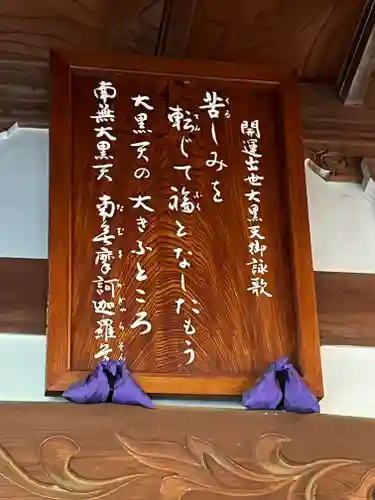 開運出世大黒天御詠歌
苦しみを
転じて福となしたもう
大黒天の大きふところ
南無大黒天 南無摩訶迦羅天